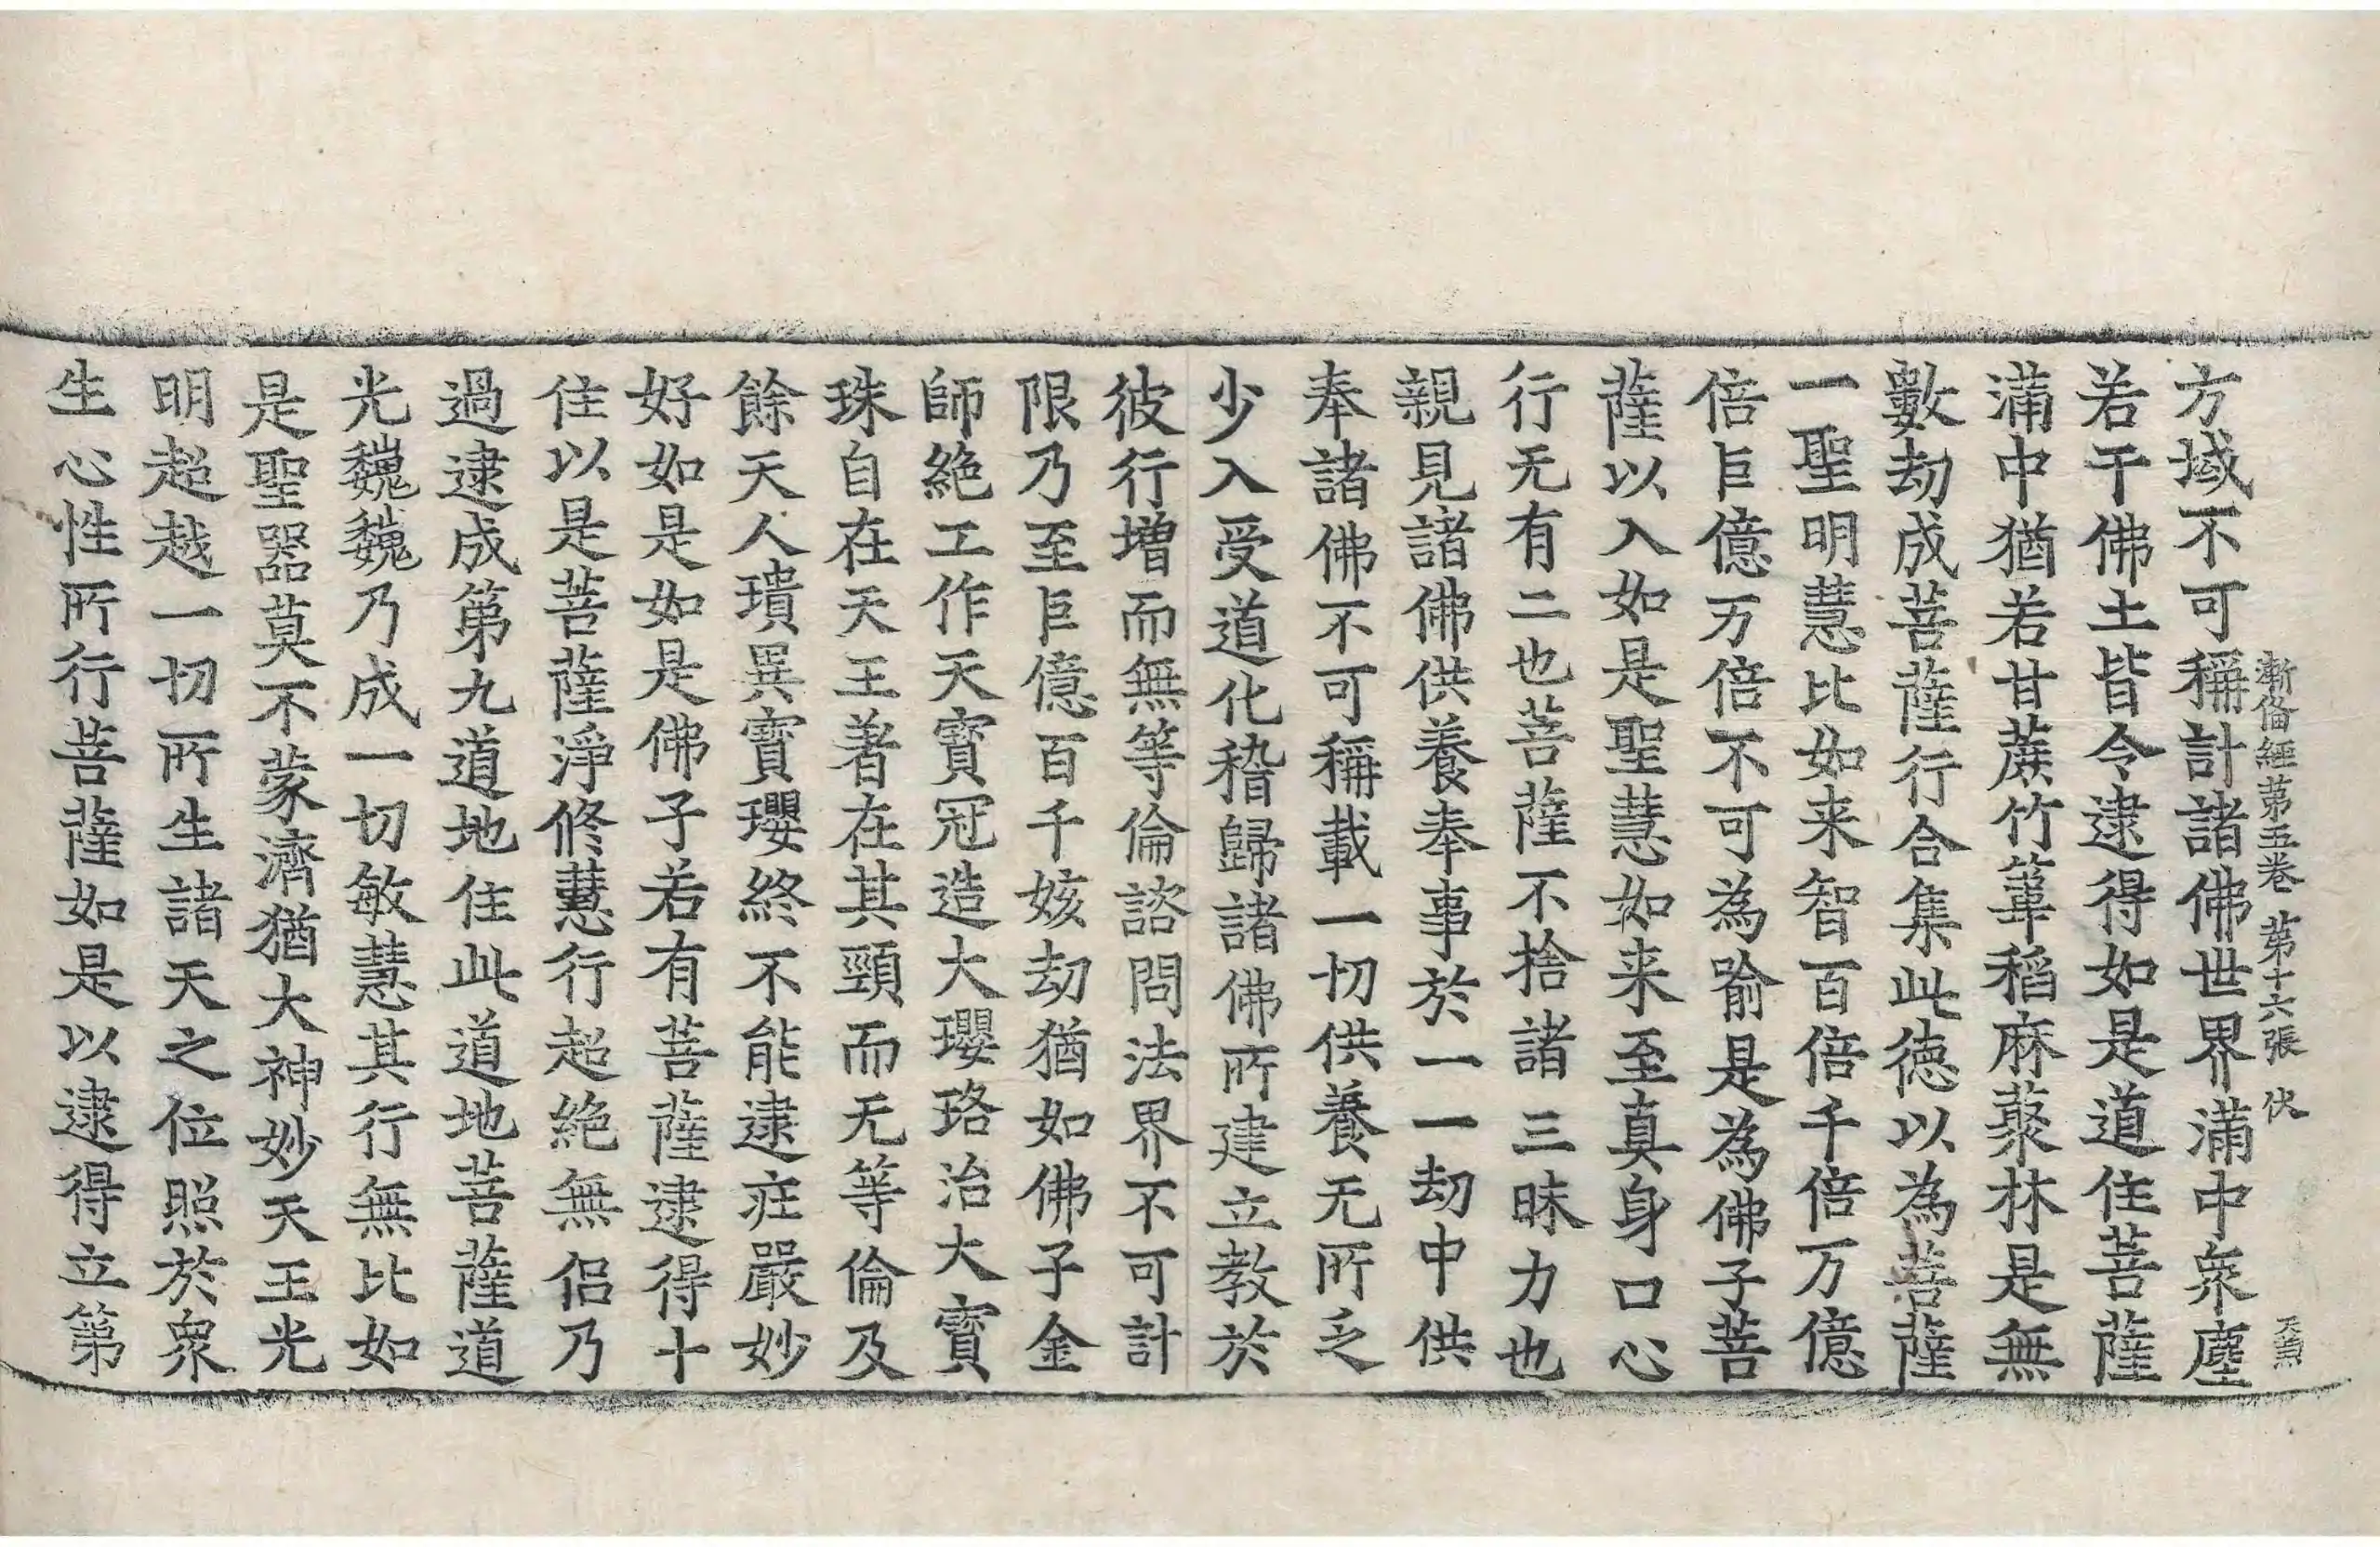 漸俻經第五卷 第十六張 伏
方域不可稱計諸佛世界滿中衆塵
若干佛土皆令逮得如是道住菩薩
滿中猶若甘蔗竹䓲稻麻䕺林是無
數劫成菩薩行合集此德以為菩薩
一聖明慧比如来智百倍千倍万億
倍巨億万倍不可為喻是為佛子菩
薩以入如是聖慧如来至真身口心
行无有二也菩薩不捨諸三昧力也
親見諸佛供養奉事於一一劫中供
奉諸佛不可稱載一切供養无所乏
少入受道化稽歸諸佛所建立教於
彼行增而無等倫諮問法界不可計
限乃至巨億百千姟劫猶如佛子金
師絶工作天寳冠造大瓔珞治大寳
珠自在天王著在其頸而无等倫及
餘天人璝異寳瓔終不能逮疘嚴妙
好如是如是佛子若有菩薩逮得十
住以是菩薩淨修慧行超絶無侣乃
過逮成第九道地住此道地菩薩道
光巍巍乃成一切敏慧其行無比如
是聖器莫不蒙濟猶大神妙天王光
明超越一切所生諸天之位照於衆
生心性所行菩薩如是以逮得立第